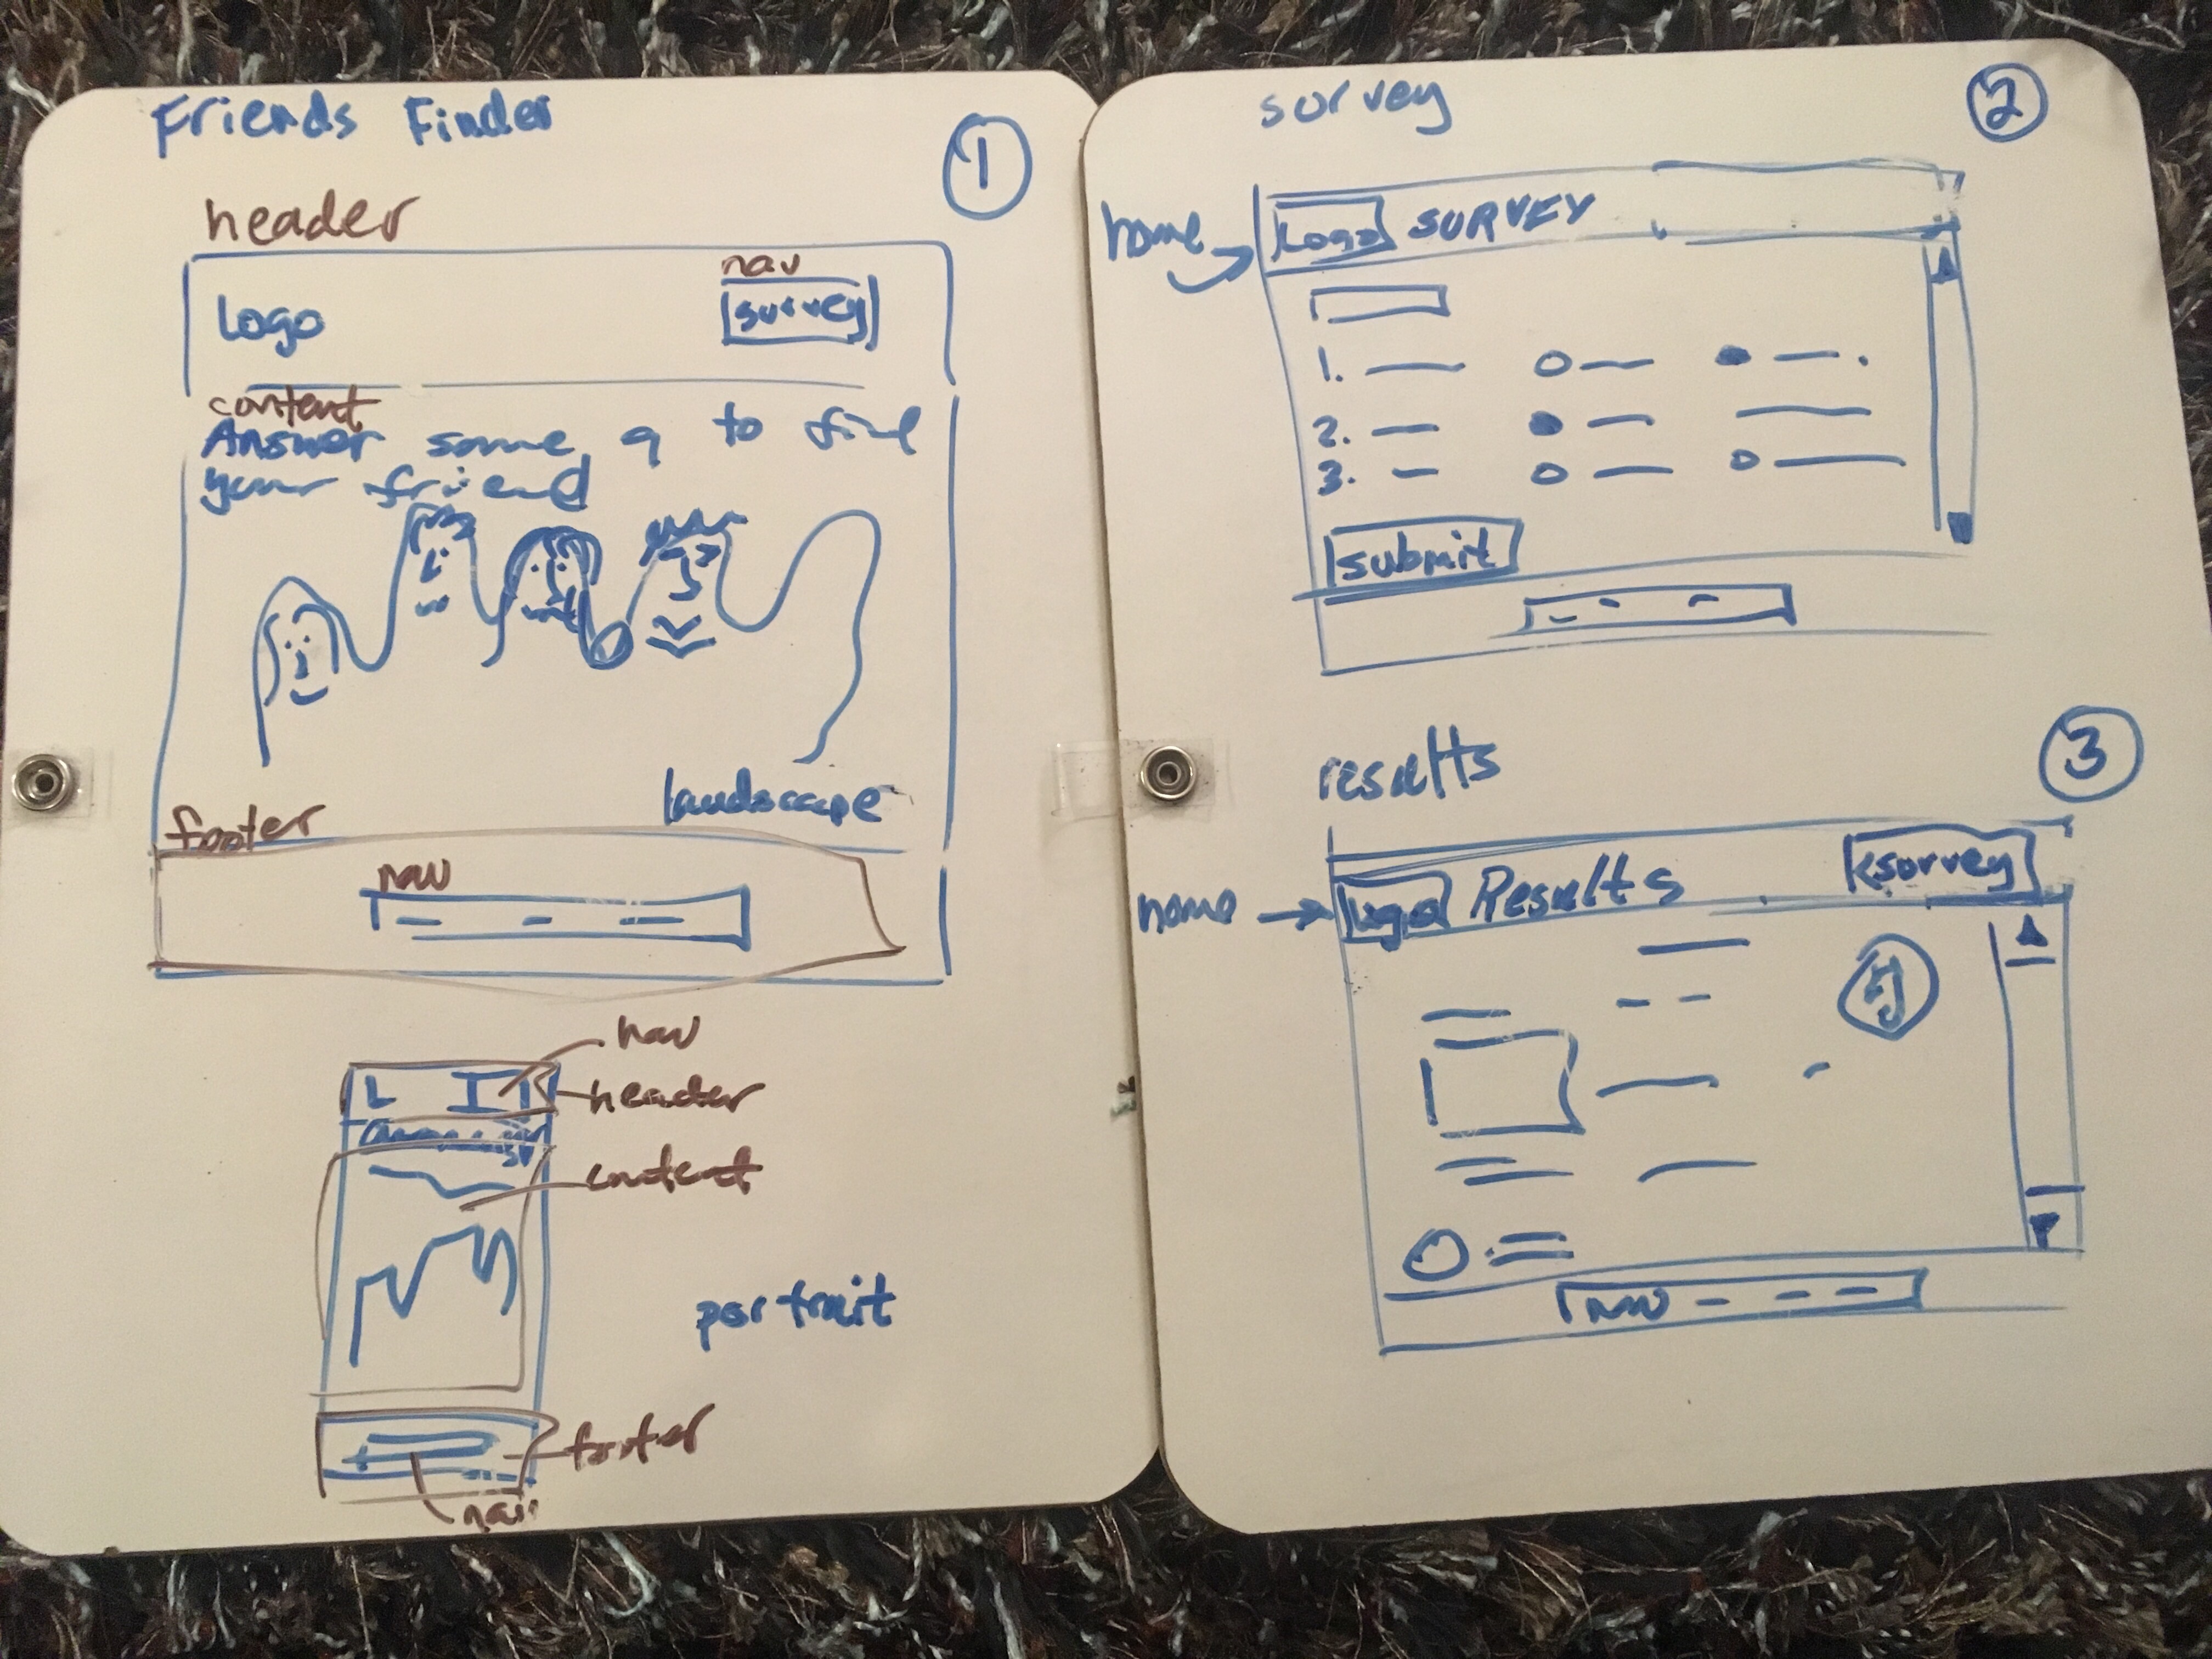 Friends Finder
1
header
nav
Logo
survey
content
Answer some q to find
your friend
landscape
footer
nav
nav
L
header
content
portrait
footer
nav
survey
2
home
Logo SURVEY
1.
2.
3.
submit
results
3
<survey
home
Logo Results
nav